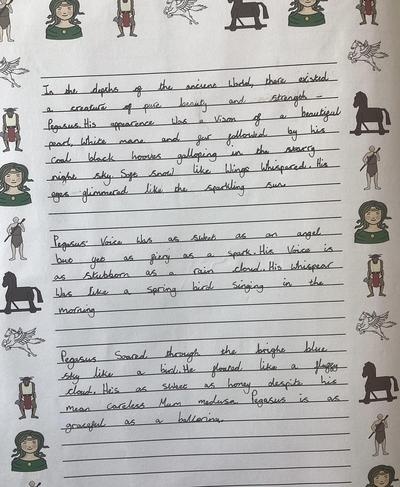 In the depths of the ancient World, there existed
a creature of pure beauty and strength –
Pegasus. His appearence was a vison of a beautiful
pearl White mane and fur followed by his
coal black hooves galloping in the starry
night sky. Soft snow like Wings Whispered. His
eyes glimmered like the sparkling sun.
Pegasus Voice Was as sweet as an angel
but yet as fiery as a spark. His Voice is
as stubborn as a rain cloud. His whispear
Was like a spring bird singing in the
morning
Pegasus Soared through the bright blue
sky like a bird. He floated like a fluffy
cloud. He's as sweet as honey despite his
mean careless Mum medusa. Pegasus is as
graceful as a ballerina.